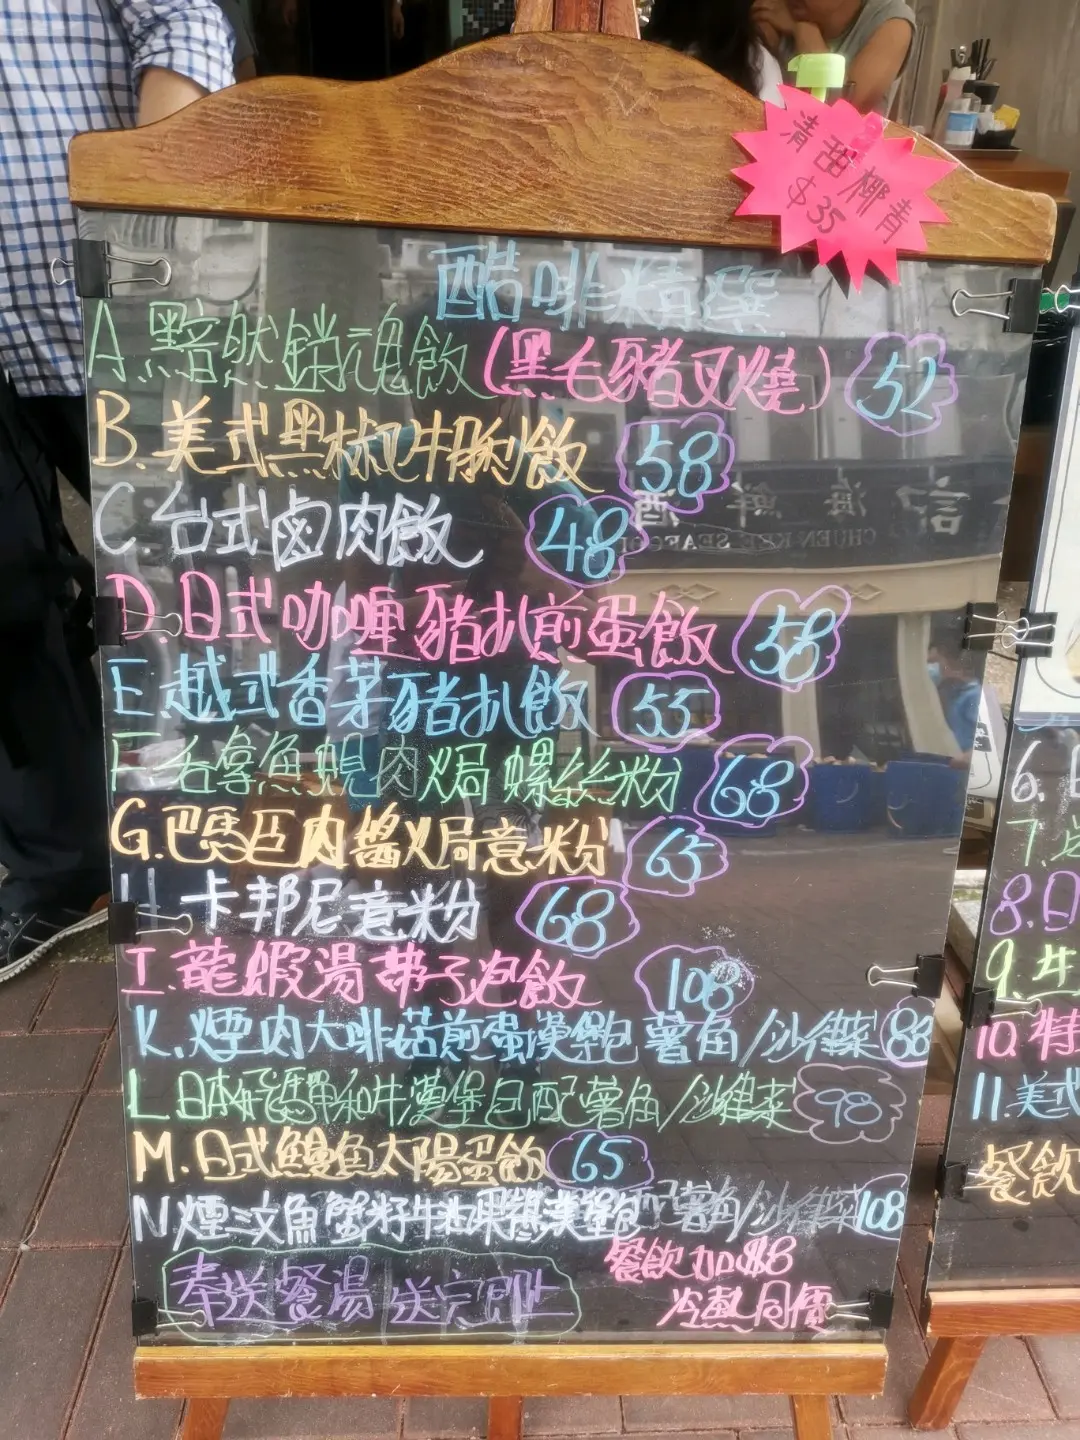 清甜椰青
$35
酷啡精選
A.黯然銷魂飯(黑毛豬叉燒) 52
B.美式黑椒牛脷飯 58
C 台式鹵肉飯 48
D.日式咖喱豬扒煎蛋飯 58
E.越式香茅豬扒飯 55
F 吞拿魚蜆肉焗螺絲粉 68
G.巴馬臣肉醬焗意粉 65
H 卡邦尼意粉 68
I.龍蝦湯帶子泡飯 108
K.煙肉大啡菇煎蛋漢堡包 薯角/沙律菜 88
L.日本好媽和牛漢堡包配薯角/沙律菜 98
M.日式鰻魚太陽蛋飯 65
N.煙三文魚蟹籽牛油果漢堡包配薯角/沙律菜 108
奉送餐湯 送完即止
餐飲加$8
冷熱同價
記海鮮酒
CHUEN KEE SEAFOOD
6.日
7.
8.日
9.牛
10.特
11.美式
餐飲